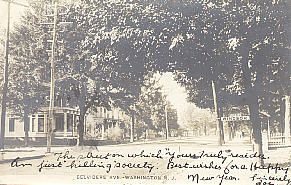 The street on which "yours truly" reside
Am just "killing" society. Best wishes for a happy
New Year. Doc
BELVIDERE AVE. WASHINGTON N. J.